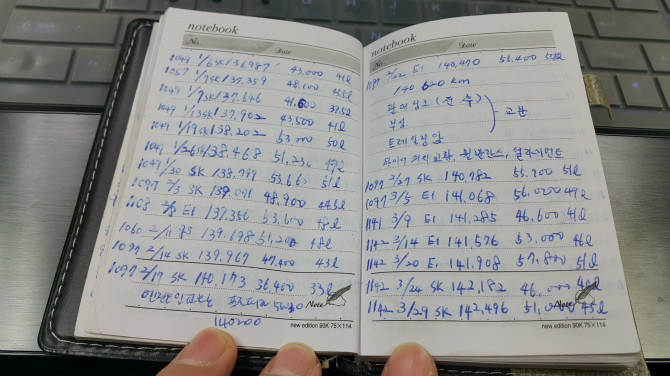 notebook
No. Date
1049 1/6 SK 136987 43,000 41ℓ
1057 1/9 SK 137,359 48,100 45.5ℓ
1049 1/9 SK 137,646 41,600 39.5ℓ
1049 1/13 SK 137,902 43,500 41ℓ
1049 1/19 SK 138,202 53,000 50ℓ
1049 1/26 SK 138,468 51,230
1049 1/30 SK 138,799 53,660 51ℓ
1097 2/3 SK 139,091 48,900 44.5ℓ
1108 2/8 E1 139,356 53,600 48ℓ
1060 2/11 GS 139,698 51,200 48ℓ
1099 2/14 SK 139,967 47,400 43ℓ
1097 2/17 SK 140,173 36,400 33ℓ
140200
Note
new edition 90K 75×114
notebook
No. Date
1087 2/22 E1 140,470 55,400 51ℓ
140,600 km
교환
1097 2/27 SK 140,782 55,700 51ℓ
1097 3/5 E1 141,068
1141 3/9 E1 141,285 46,600 41ℓ
1142 3/14 E1 141,576 53,000 46ℓ
1142 3/20 E1 141,908 57,800 51ℓ
1142 3/24 SK 142,182 46,000
1142 3/29 SK 142,496 51,000 45ℓ
Note
new edition 90K 75×114